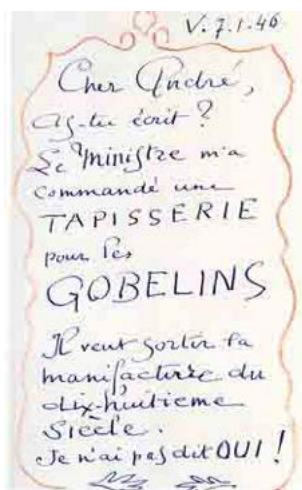 V. 7.1.46
Cher André,
as-tu écrit ?
Le Ministre m'a
commandé une
TAPISSERIE
pour les
GOBELINS
Il veut sortir la
manifacture du
dix-huitieme
Siècle.
Je n'ai pas dit OUI !